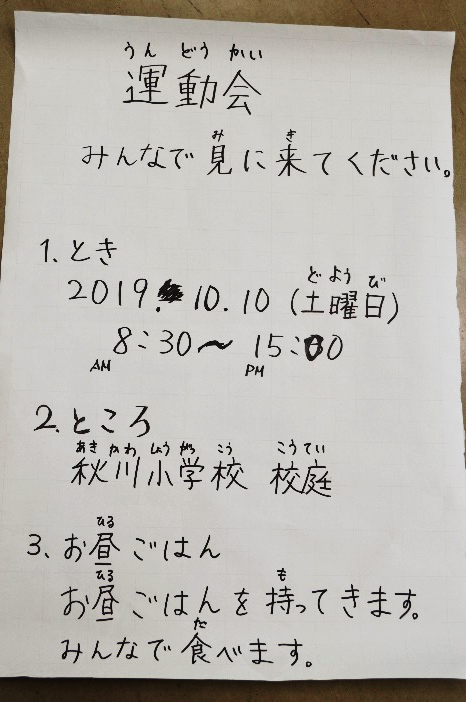 うんどうかい
運動会
み き
みんなで見に来てください。
1. とき
どようび
2019. 10.10 (土曜日)
AM 8:30〜PM 15:00
2. ところ
あきかわしょうがっこう こうてい
秋川小学校 校庭
ひる
3. お昼ごはん
ひる も
お昼ごはんを持ってきます。
た
みんなで食べます。